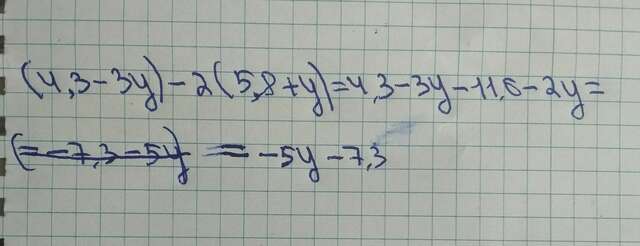 (4,3-3y)-2(5,8+y)=4,3-3y-11,6-2y=
(= -7,3-5y) = -5y-7,3